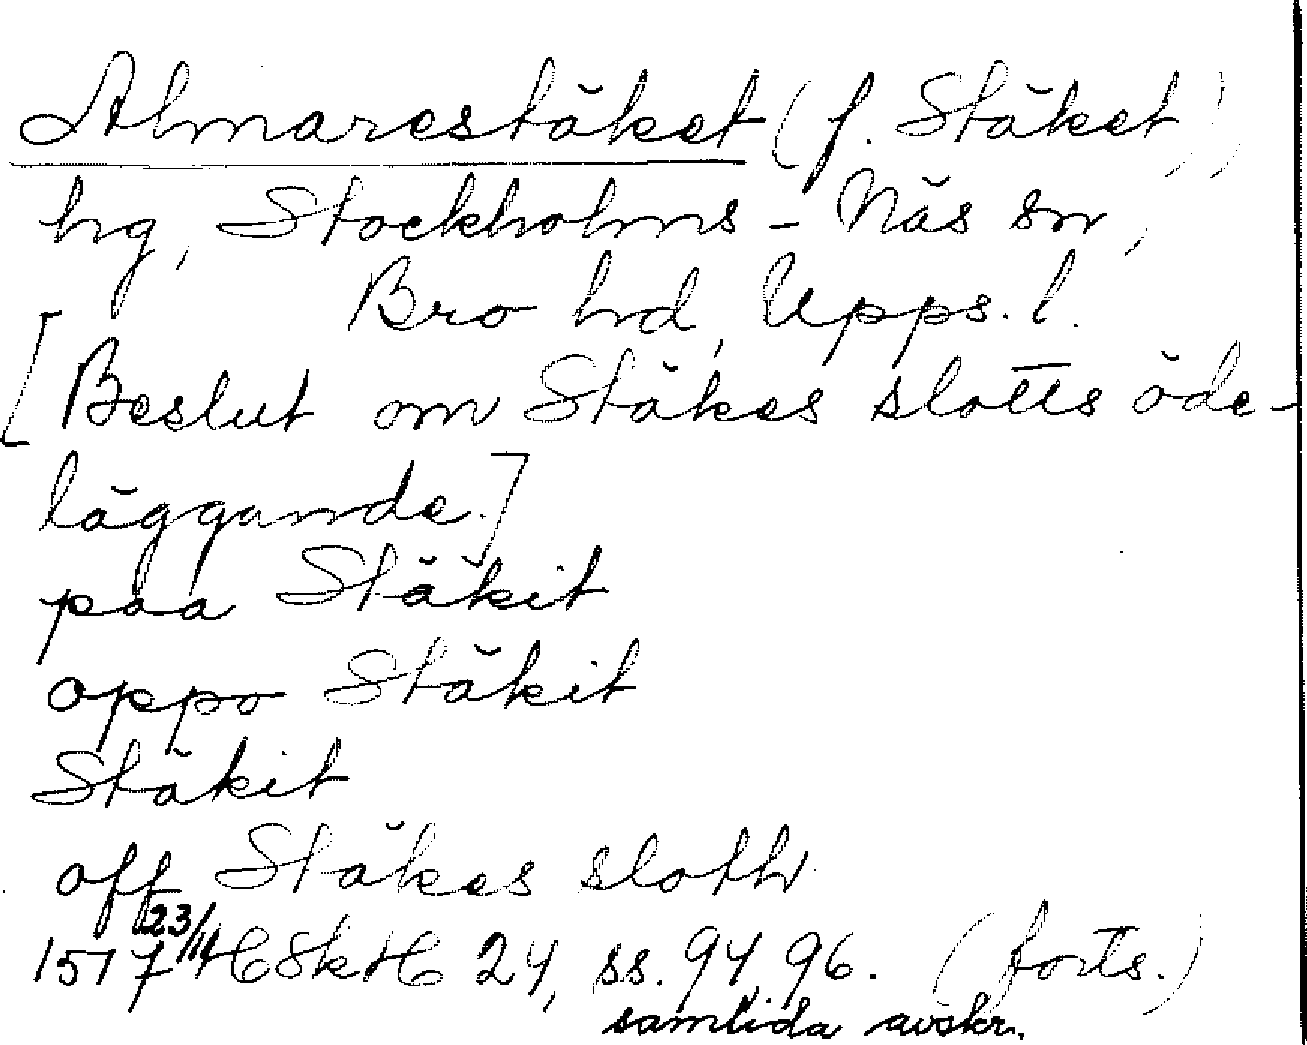 Almarestäket (f. Stäket),
hg, Stockholms-Näs sn,
Bro hd, Upps. l.
[Beslut om Stäkes slotts öde-
läggande.]
paa Stäkit
oppo Stäkit
Stäkit
off Stäkes sloth
1517 23/11 HSkH 24, ss. 94, 96. (forts.)
samtida avskr.